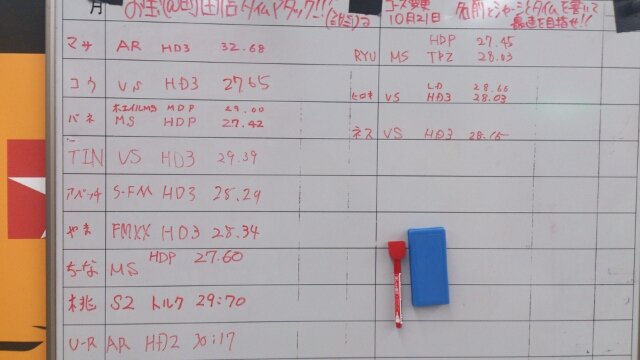 月 お宝@町田店タイムアタック!!
コース変更
10月21日~ 名前とシャーシとタイムを書いて
最速を目指せ!!
マサ AR HD3 32.68
コウ VS HD3 27.65
バネ ホエイルMS MDP 29.00
MS HDP 27.42
TIN VS HD3 29.39
アパッチ S-FM HD3 28.29
やま FMXX HD3 28.34
ちーな MS HDP 27.60
桃 S2 トルク 29:70
U-R AR HD2 30:17
RYU MS HDP 27.45
28.03
ヒロキ VS LD 28.66
HD3 28.03
ネス VS HD3 28.15